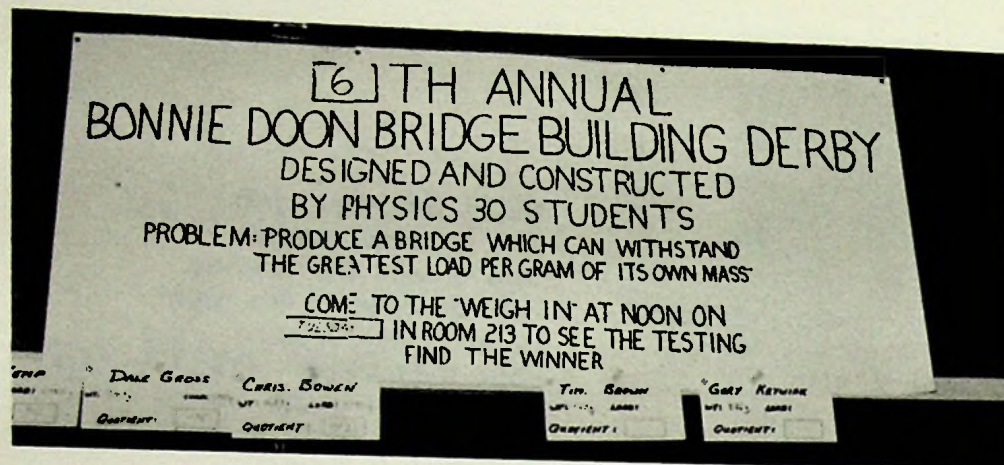 [6] TH ANNUAL
BONNIE DOON BRIDGE BUILDING DERBY
DESIGNED AND CONSTRUCTED
BY PHYSICS 30 STUDENTS
PROBLEM: PRODUCE A BRIDGE WHICH CAN WITHSTAND
THE GREATEST LOAD PER GRAM OF ITS OWN MASS
COME TO THE "WEIGH IN" AT NOON ON
TUESDAY IN ROOM 213 TO SEE THE TESTING
FIND THE WINNER
DALE GROSS
QUOTIENT:
CHRIS. BOWEN
WT LOAD:
QUOTIENT
TIM. BROWN
WT: LOAD:
QUOTIENT:
GARY
WT: LOAD:
QUOTIENT: